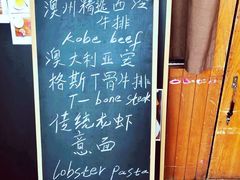 澳洲精选西冷
牛排
kobe beef
澳大利亚安
格斯T骨牛排
T-bone steak
传统龙虾
意面
lobster pasta